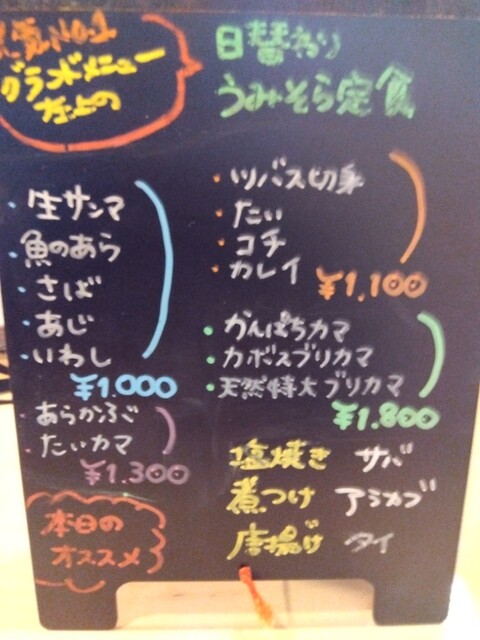 人気No.1
グランドメニュー
左上の
日替わり
うみそら定食
・生サンマ
・魚のあら
・さば
・あじ
・いわし
¥1.000
・あらかぶご
・たいカマ
¥1.300
・ツバス切身
・たい
・コチ
・カレイ
¥1,100
・かんぱちカマ
・カボスブリカマ
・天然特大ブリカマ
¥1.800
本日の
オススメ
塩焼き サバ
煮つけ アラカブ
唐揚げ タイ